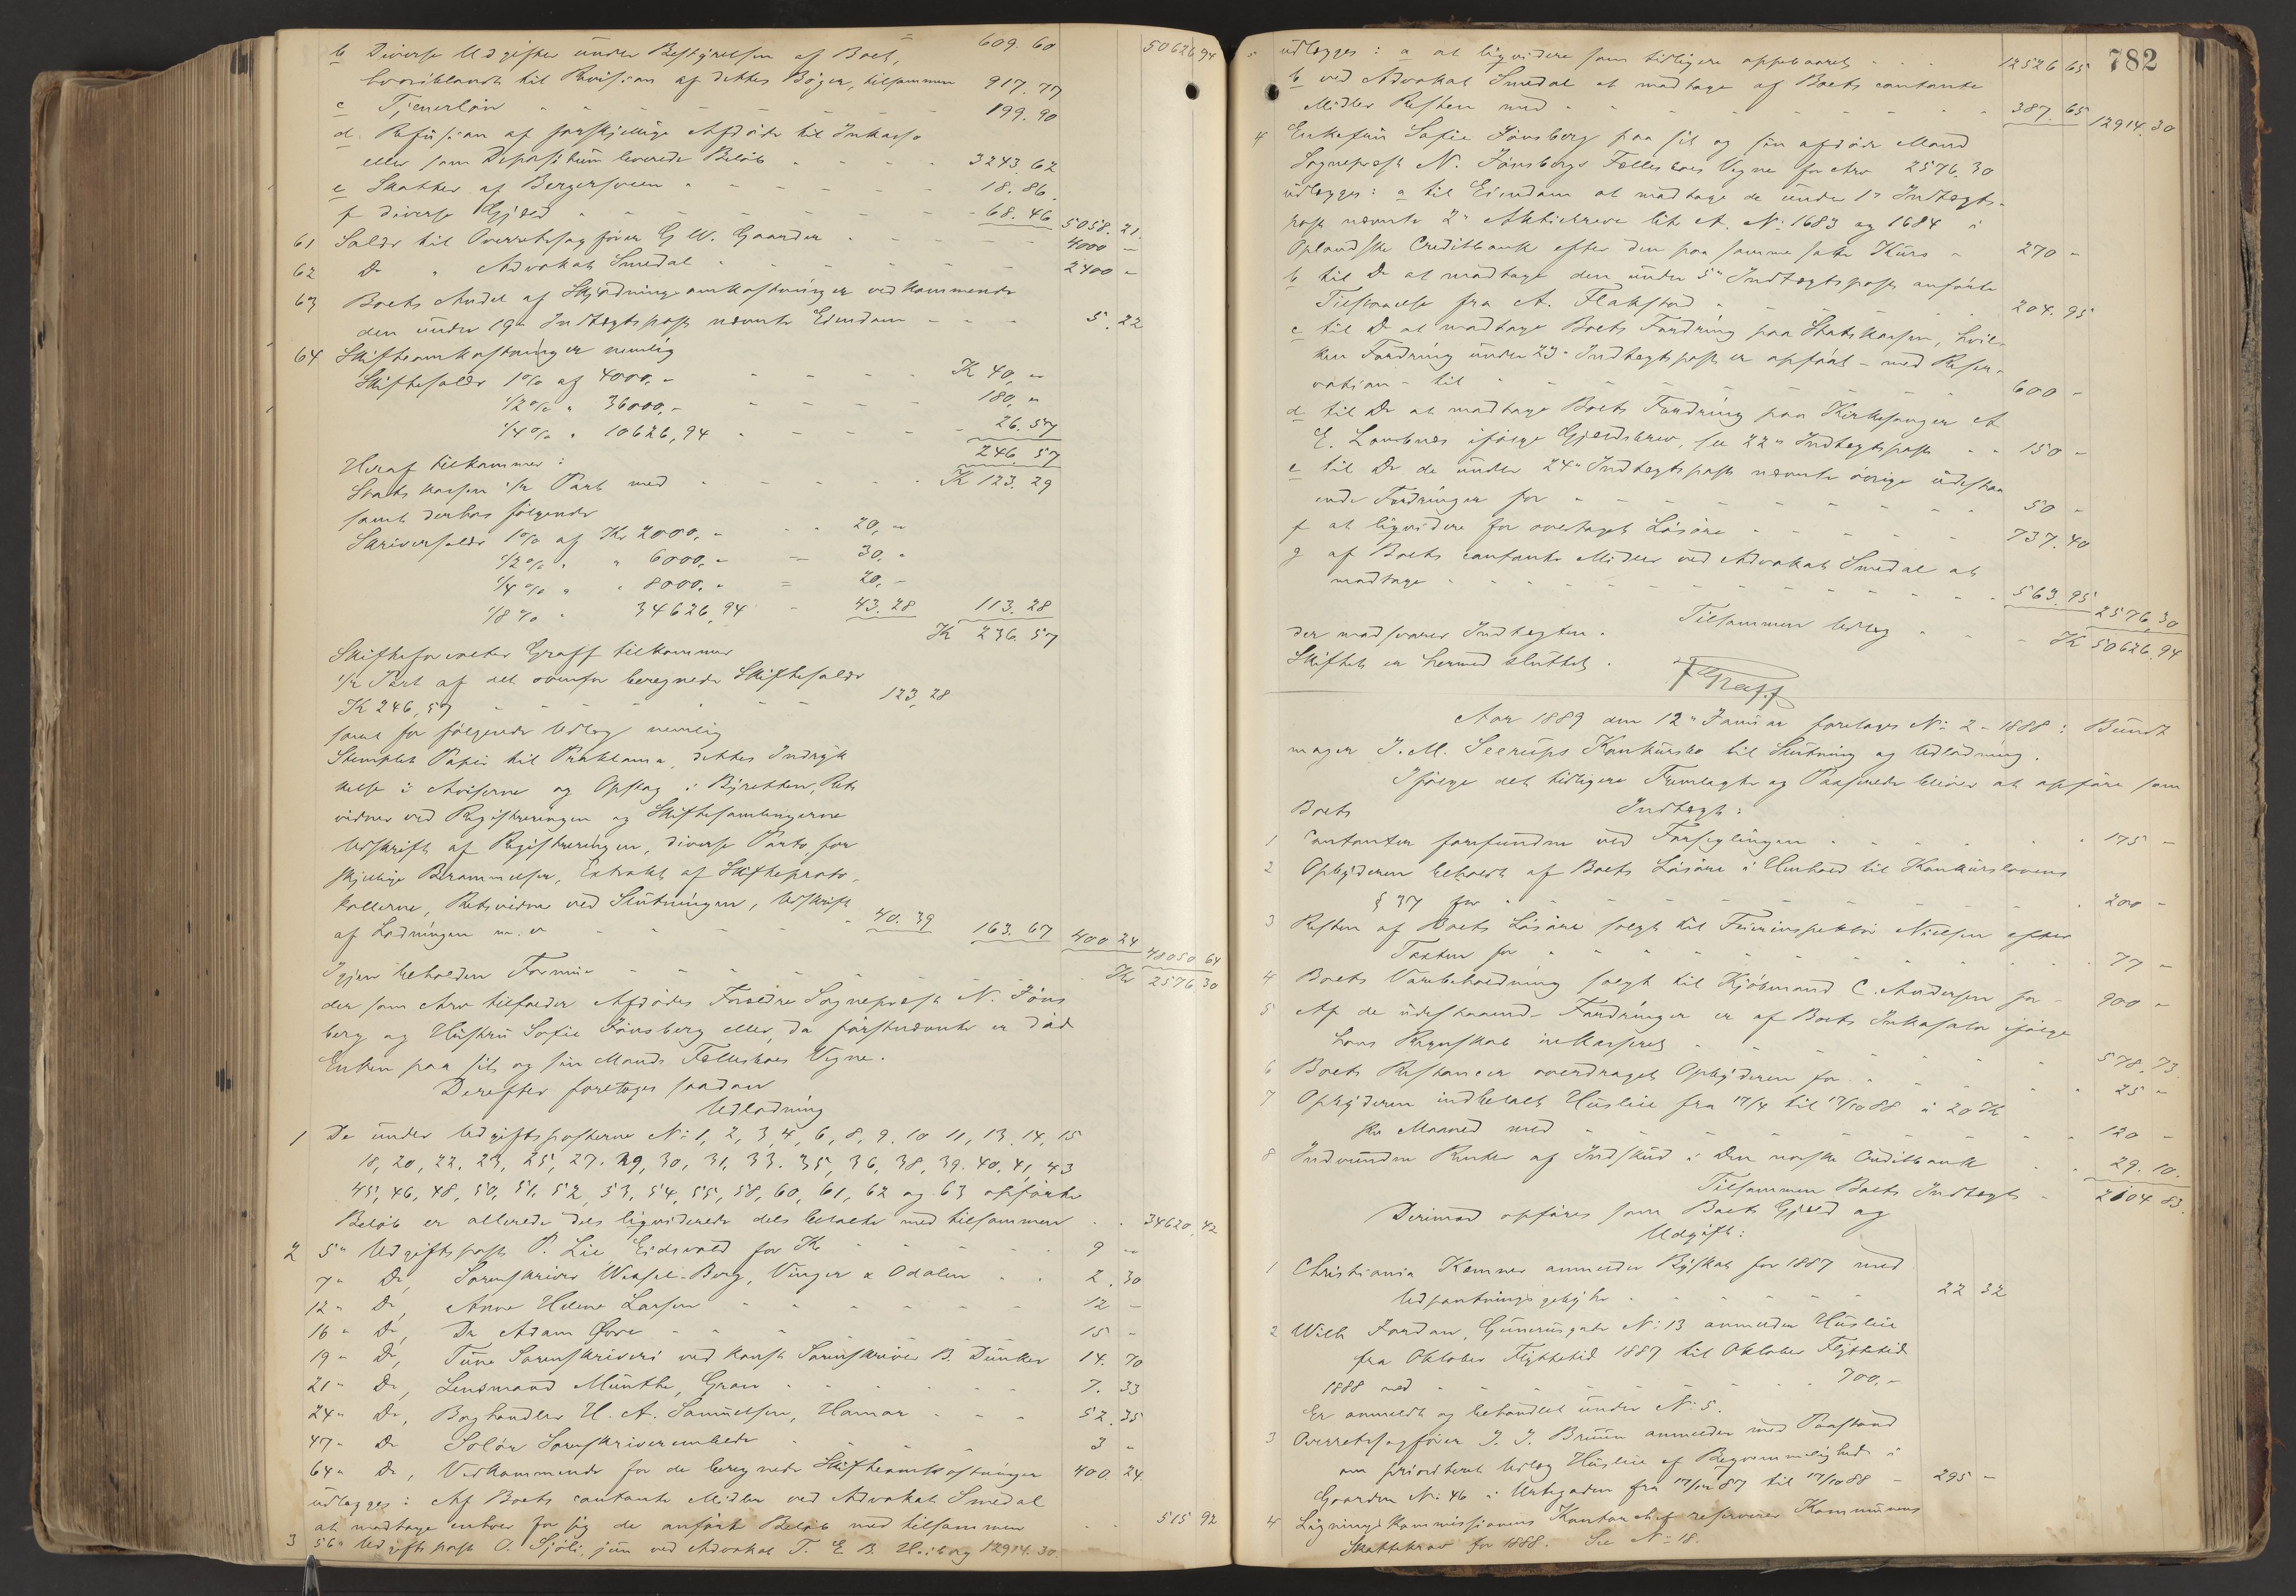 b Diverse Udgifter under Bestyrelsen af Boet, 609. 60 50626 94
hvoriblandt til Revision af dettes Bøger, tilsammen 917. 77
c Tjenerløn 199. 90
d. Refusion af forskjellige Afdøde til Inkasso
eller som Depositum leverede Beløb 3243. 62
e Skatter af Bergersveen 18. 86
f diverse Gjæld 68. 46 5058. 21.
61 Salær til Overretssagfører G W. Gaarder 4000 -
62 Do " Advokat Smedal 2400 -
63 Boets Andel af Skjødningsomkostninger vedkommende
den under 19de Indtægtspost nævnte Eiendom 5. 22
64 Skifteomkostninger nemlig
Skiftesalær 1% af 4000,- K 40,-
1/2% " 36000,- 180,-
1/4% " 10626,94 26. 57
246. 57
Heraf tilkommer:
Statskassen 1/2 Part med K 123. 29
samt derhos følgende
Skriversalær 1% af Kr 2000,- 20,-
1/2% " " 6000,- 30,-
1/4% " " 8000,- 20,-
1/8% " 34626,94 43. 28 113. 28
K 236. 57
Skifteforvalter Graff tilkommer
1/2 Part af det ovenfor beregnede Skiftesalær
K 246,57 123, 28
samt for følgende Udlæg nemlig
Stemplet Papir til Proklama, dettes Indryk
kelse i Aviserne og Opslag i Byretten, Rets
vidner ved Registreringen og Skiftesamlingerne
Udskrift af Registreringen, diverse Porto, for
skjellige Berammelser, Extrakt af Skifteproto-
kollerne, Retsvidne ved Slutningen, Udskrift
af Lodningen m. v 40. 39 163. 67 400 24 48050 64
Igjen beholden Formue Kr 2576 30
der som Arv tilfalder Afdødes Forældre Sogneprest N. Jøns
berg og Hustru Sofie Jønsberg eller, da førstnævnte er død
Enken paa sit og sin Mands Fællesboes Vegne.
Derefter foretoges saadan
Udlodning
1 De under Udgiftsposterne No: 1, 2, 3, 4, 6, 8, 9. 10 11, 13. 14, 15
18, 20, 22. 23, 25, 27. 29, 30, 31, 33. 35, 36, 38, 39. 40. 41, 43
45, 46, 48, 50, 51, 52, 53, 54, 55, 58, 60, 61, 62 og 63 opførte
Beløb er allerede dels ligviderede dels betalte med tilsammen 34620, 42
2 5te Udgiftspost P. Lie Eidsvold for Kr 9 -
7de Do, Sorenskriver Wessel-Berg, Vinger & Odalen 2. 30
12te Do, Anne Helene Larsen 12 -
16de Do, Dr Adam Owre 15 -
19de Do, Tune Sorenskriveri ved konst. Sorenskriver B. Dunker 14. 70
21de Do, Lensmand Munthe, Gran 7. 33
24de Do, Boghandler H. A. Samuelsen, Hamar 52. 35
47de Do Solør Sorenskriverembede 3 -
64de Do, Vedkommende for de beregnede Skifteomkostninger 400 24
udlægges: Af Boets contante Midler ved Advokat Smedal
at modtage enhver for sig de anførte Beløb med tilsammen 515 92
3 56de Udgiftspost O. Sjøli jun ved Advokat T. E. B. Heiberg 12914. 30
782
udlægges: a at ligvidere som tidligere oppebaaret 12526 65
b ved Advokat Smedal at modtage af Boets contante
Midler Resten med 387. 65 12914. 30
4 Enkefru Sofie Jønsberg paa sit og sin afdøde Mand
Sogneprest N. Jønsbergs Fællesboes Vegne for Arv 2576. 30
udlægges: a til Eiendom at modtage de under 1ste Indtægts-
post nævnte 2de Aktiebreve lit A. No: 1683 og 1684 i
Oplandske Creditbank efter den paa samme satte Kurs 270 -
b til Do at modtage den under 5te Indtægtspost anførte
Tilstaaelse fra A. Flakstad 204. 95
c til Do at modtage Boets Fordring paa Statskassen, hvil-
ken Fordring under 23de Indtægtspost er opført - med Reser-
vation - til 600 -
d til Do at modtage Boets Fordring paa Kirkesanger A
E. Lombnes ifølge Gjældsbrev, se 22de Indtægtspost 150 -
e til Do de under 24de Indtægtspost nævnte øvrige udestaa
ende Fordringer for 50 -
f at ligvidere for overtaget Løsøre 737. 40
g af Boets contante Midler ved Advokat Smedal at
modtage 563. 95 2576, 30
Tilsammen Udlæg K 50626. 94
der modsvarer Indtægten.
Skiftet er hermed sluttet.
Graff
Aar 1889 den 12te Januar foretages No 2 - 1888: Bundt
mager J. M. Seerups Konkursbo til Slutning og Udlodning.
Ifølge det tidligere Fremlagte og Passerede bliver at opføre som
Boets Indtægt:
1 Contanter forefundne ved Forseglingen 175 -
2 Opbyderen beholdt af Boets Løsøre i Henhold til Konkurslovens
§ 37 for 200 -
3 Resten af Boets Løsøre solgt til Inspektør Nielsen efter
Taxten for 77 -
4 Boets Varebeholdning solgt til Kjøbmand C. Andersen for 900 -
5 Af de udestaaende Fordringer er af Boets Inkasator ifølge
hans Regnskab inkasseret 578, 73
6 Boets Restancer overdraget Opbyderen for 25 -
7 Opbyderen indbetalt Husleie fra 17/4 til 17/10 88 à 20 K
pr Maaned med 120 -
8 Indvundne Renter af Indskud i Den norske Creditbank 29. 10.
Tilsammen Boets Indtægt 2104 83.
Derimod opføres som Boets Gjæld og
Udgift:
1 Christiania Kemner anmelder Byskat for 1887 med
Udpantningsgebyhr 22 32
2 Wilh Jordan, Gunerusgade No: 13 anmelder Husleie
fra Oktober Flyttetid 1887 til Oktober Flyttetid
1888 med 700,-
Er anmeldt og behandlet under No 5.
3 Overretssagfører J. J. Bruun anmelder med Paastand
om prioriteret Udlæg Husleie af Begvemmelighed i
Gaarden No: 46 i Urtegaden fra 17/10 87 til 17/10 88 295 -
4 Ligningskommissionens Kontorchef reserverer Kommunens
Skattekrav for 1888. Se No 18.